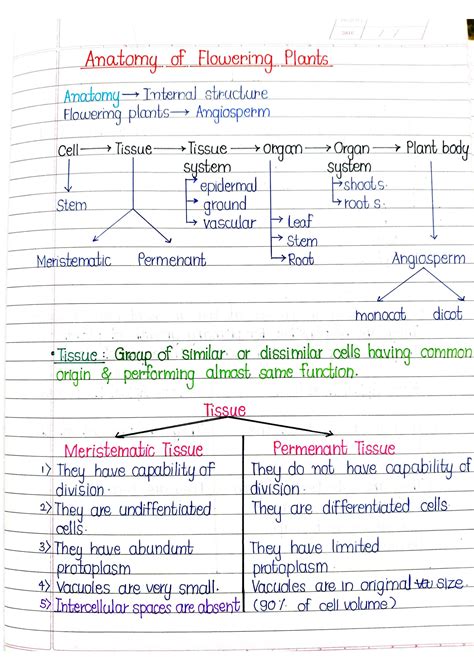 DATE
Anatomy of Flowering Plants
Anatomy → Internal structure
Flowering plants → Angiosperm
Cell → Tissue → Tissue system → Organ → Organ system → Plant body
Stem
epidermal
ground
vascular
shoots
roots.
Leaf
Stem
Root
Meristematic Permenant
Angiosperm
monocot dicot
• Tissue : Group of similar or dissimilar cells having common
origin & performing almost same function.
Tissue
Meristematic Tissue
1) They have capability of
division.
2) They are undiffentiated
cells.
3) They have abundunt
protoplasm
4) Vacuoles are very small.
5) Intercellular spaces are absent
Permenant Tissue
They do not have capability of
division.
They are differentiated cells.
They have limited
protoplasm.
Vacuoles are in original size
(90% of cell volume)